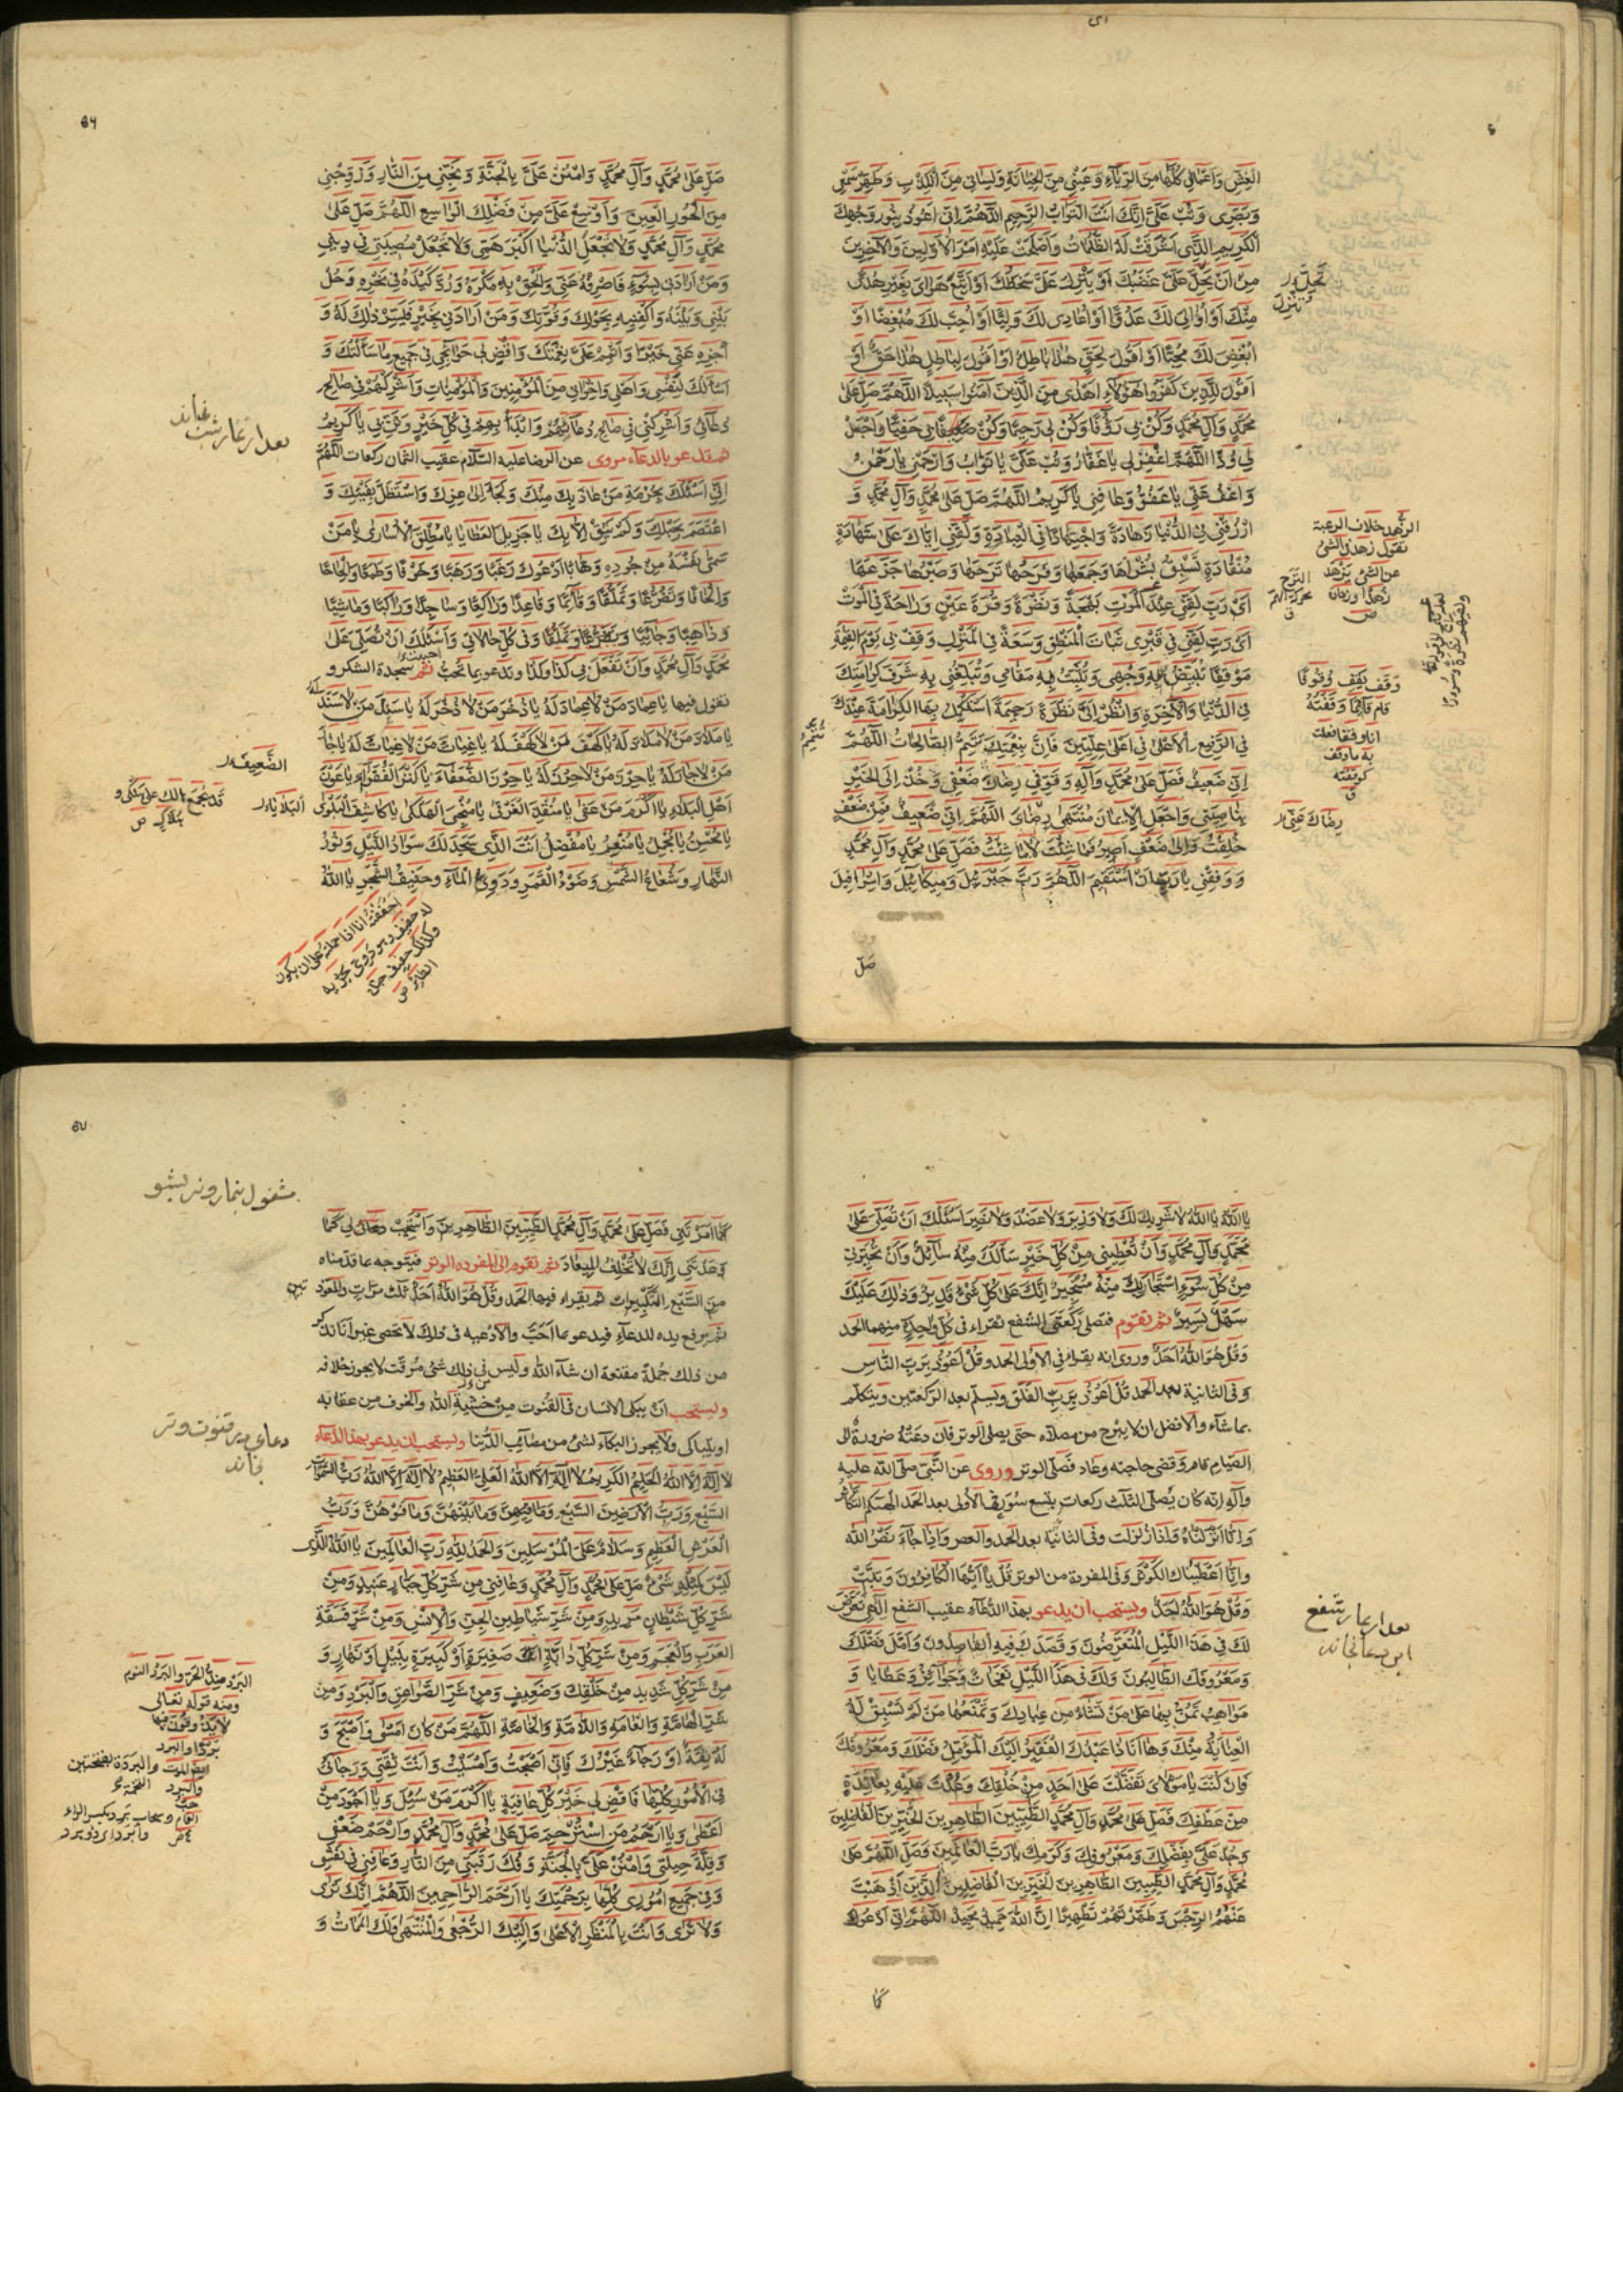 الغش واعمالى كلها من الرياء وعينى من الخيانة ولسانى من الكذب وطهر سمعى
وبصرى وتب على انك انت التواب الرحيم اللهم انى اعوذ بنور وجهك
الكريم الذى اشرقت له الظلمات واصلحت عليه امر الاولين والآخرين
من ان يحل على غضبك او ينزل على سخطك او اتبع هواى بغير هدى
منك او اوالى لك عدوا او اعادى لك وليا او احب لك مبغضا او
ابغض لك محبا او اقول لحق هذا باطل او اقول لباطل هذا حق او
اقول للذين كفروا هؤلاء اهدى من الذين آمنوا سبيلا اللهم صل على
محمد وآل محمد وكن بى رؤفا وكن لى رحيما وكن بى حفيا واجعل
لى ودا اللهم اغفر لى يا غفار وتب على يا تواب وارحمنى يا رحمن
واعف عنى يا عفو وعافنى يا كريم اللهم صل على محمد وآل محمد و
ارزقنى فى الدنيا زهادة واجتهادا فى العبادة ولقنى اياك على شهادة
منقادة تسبق بشراها وجعها وفرحها ترحها وصبرها جزعها
اى رب لقنى عند الموت بهجة ونضرة وقرة عين وراحة فى الموت
اى رب لقنى فى قبرى ثبات المنطق وسعة فى المنزل وقف بى يوم القيمة
موقفا تبيض به وجهى وتثبت به مقامى وتبلغنى به شرف كرامتك
فى الدنيا والآخرة وانظر الى نظرة رحيمة استكمل بها الكرامة عندك
فى الرفيع الاعلى فى اعلى عليين فان بنعمتك تتم الصالحات اللهم
انى ضعيف فصل على محمد وآله وقو فى رضاك ضعفى وخذ الى الخير
بناصيتى واجعل الايمان منتهى رضاى اللهم انى ضعيف فمن ضعف
خلقت والى ضعف اصير فما شئت لا ما شئت فصل على محمد وآل محمد
ووفقنى يا رب ان استقيم اللهم رب جبرئيل وميكائيل واسرافيل
صل
تحل
تنزل
الزهد خلاف الرغبة
تقول زهد فى الشئ
عن الشئ يزهد
زهدا وزهادة
وقف يقف وقوفا
قام قائما وقفته
انا وقفا فعلت
به ما وقف
رضاك عنى
صل على محمد وآل محمد وامنن على بالجنة ونجنى من النار وزوجنى
من الحور العين واوسع على من فضلك الواسع اللهم صل على
محمد وآل محمد ولا تجعل الدنيا اكبر همى ولا تجعل مصيبتى فى دينى
ومن ارادنى بسوء فاصرفه عنى والحق به مكره ورد كيده فى نحره وحل
بينى وبينه واكفنيه بحولك وقوتك ومن ارادنى بخير فيسر ذلك له و
اجزه عنى خيرا واتمم على نعمتك واقض لى حوائجى فى جميع ما سألتك و
اسألك لنفسى واهلى واخوانى من المؤمنين والمؤمنات واشركهم فى صالح
دعائى واشركنى فى صالح دعائهم وابدأ بهم فى كل خير وثن بى يا كريم
ثم تدعو بالدعاء مروى عن الرضا عليه السلام عقيب الثمان ركعات اللهم
انى اسئلك بحرمة من عاذ بك منك ولجأ الى عزك واستظل بفيئك و
اعتصم بحبلك ولم يثق الا بك يا جزيل العطايا يا مطلق الاسارى يا من
سمى نفسه من جوده وهابا ادعوك رغبا ورهبا وخوفا وطمعا والحاحا
والحافا وتضرعا وتملقا وقائما وقاعدا وراكعا وساجدا وراكبا وماشيا
وذاهبا وجائيا وفى كل حالاتى واسئلك ان تصلى على
محمد وآل محمد وان تفعل بى كذا وكذا وتدعو بما تحب ثم سجدة الشكر و
تقول فيها يا عماد من لا عماد له يا ذخر من لا ذخر له يا سند من لا سند له
يا ملاذ من لا ملاذ له يا كهف من لا كهف له يا غياث من لا غياث له يا جار
من لا جار له يا حرز من لا حرز له يا حرز الضعفاء يا كنز الفقراء يا عون
اهل البلاء يا اكرم من عفى يا منقذ الغرقى يا منجى الهلكى يا كاشف البلوى
يا محسن يا مجمل يا منعم يا مفضل انت الذى سجد لك سواد الليل ونور
النهار وشعاع الشمس وضوء القمر ودوى الماء وحفيف الشجر يا الله
بعد از نماز شب بخواند
الضعيف
البلايا
يا الله يا الله لا شريك لك ولا وزير ولا عضد ولا نصير اسئلك ان تصلى على
محمد وآل محمد وان تعطينى من كل خير سألك منه سائل وان تجيرنى
من كل سوء استجار بك منه مستجير انك على كل شئ قدير وذلك عليك
سهل يسير ثم تقوم فتصلى ركعتى الشفع تقراء فى كل واحدة منهما الحمد
وقل هو الله احد وروى انه يقراء فى الاولى الحمد وقل اعوذ برب الناس
وفى الثانية بعد الحمد قل اعوذ برب الفلق ويسلم بعد الركعتين ويتكلم
بما شاء والافضل ان لا يبرح من مصلاه حتى يصلى الوتر فان دعته ضرورة الى
القيام قام وقضى حاجته وعاد فصلى الوتر وروى عن النبى صلى الله عليه
وآله انه كان يصلى الثلث ركعات بتسع سور فى الاولى بعد الحمد الهيكم التكاثر
وانا انزلناه واذا زلزلت وفى الثانية بعد الحمد والعصر واذا جاء نصر الله
وانا اعطيناك الكوثر وفى المفردة من الوتر قل يا ايها الكافرون وتبت
وقل هو الله احد ويستحب ان يدعو بهذا الدعاء عقيب الشفع الهى تعرض
لك فى هذا الليل المتعرضون وقصدك فيه القاصدون وامل فضلك
ومعروفك الطالبون ولك فى هذا الليل نفحات وجوائز وعطايا و
مواهب تمن بها على من تشاء من عبادك وتمنعها من لم تسبق له
العناية منك وها انا ذا عبدك الفقير اليك المؤمل فضلك ومعروفك
فان كنت يا مولاى تفضلت على احد من خلقك وعدت عليه بعائدة
من عطفك فصل على محمد وآل محمد الطيبين الطاهرين الخيرين الفاضلين
وجد على بفضلك ومعروفك وكرمك يا رب العالمين وصل اللهم على
محمد وآل محمد الطيبين الطاهرين الخيرين الفاضلين الذين اذهبت
عنهم الرجس وطهرتهم تطهيرا ان الله حميد مجيد اللهم انى ادعوك
كما
بعد از نماز شفع
اين دعا بخواند
كما امرتنى فصل على محمد وآل محمد الطيبين الطاهرين واستجب لى كما
وعدتنى انك لا تخلف الميعاد ثم تقوم الى المفردة الوتر فيتوجه بما قدمناه
من السبع التكبيرات ثم يقراء فيها الحمد وقل هو الله احد ثلث مرات والمعوذتين
ثم يرفع يده للدعاء فيدعو بما احب والادعيه فى ذلك لا تحصى غير انا نذكر
من ذلك جملة مقنعة ان شاء الله وليس فى ذلك شئ موقت لا يجوز خلافه
ويستحب ان يبكى الانسان فى القنوت من خشية الله والخوف من عقابه
او يتباكى ولا يجوز البكاء لشئ من مصائب الدنيا ويستحب ان يدعو بهذا الدعاء
لا اله الا الله الحليم الكريم لا اله الا الله العلى العظيم لا اله الا الله رب السموات
السبع ورب الارضين السبع وما فيهن وما بينهن وما فوقهن ورب
العرش العظيم وسلام على المرسلين والحمد لله رب العالمين يا الله الذى
ليس كمثله شئ صل على محمد وآل محمد وعافنى من شر كل جبار عنيد ومن
شر كل شيطان مريد ومن شر شياطين الجن والانس ومن شر فسقة
العرب والعجم ومن شر كل دابة صغيرة او كبيرة بليل او نهار و
من شر كل شديد من خلقك وضعيف ومن شر الصواعق والبرد ومن
شر الهامة والعامة واللامة والخاصة اللهم من كان امسى واصبح و
له ثقة او رجاء غيرك فانى اصبحت وامسيت وانت ثقتى ورجائى
فى الامور كلها فاقض لى خير كل عافية يا اكرم من سئل ويا اجود من
اعطى ويا ارحم من استرحم صل على محمد وآل محمد وارحم ضعفى
وقلة حيلتى وامنن على بالجنة وفك رقبتى من النار وعافنى فى نفسى
وفى جميع امورى كلها برحمتك يا ارحم الراحمين اللهم انك ترى
ولا ترى وانت بالمنظر الاعلى واليك الرجعى والمنتهى ولك الممات و
مشغول بنماز وتر بشو
دعاى در قنوت وتر
بخواند
البرد ضد الحر والبرد النوم
ومنه قوله تعالى